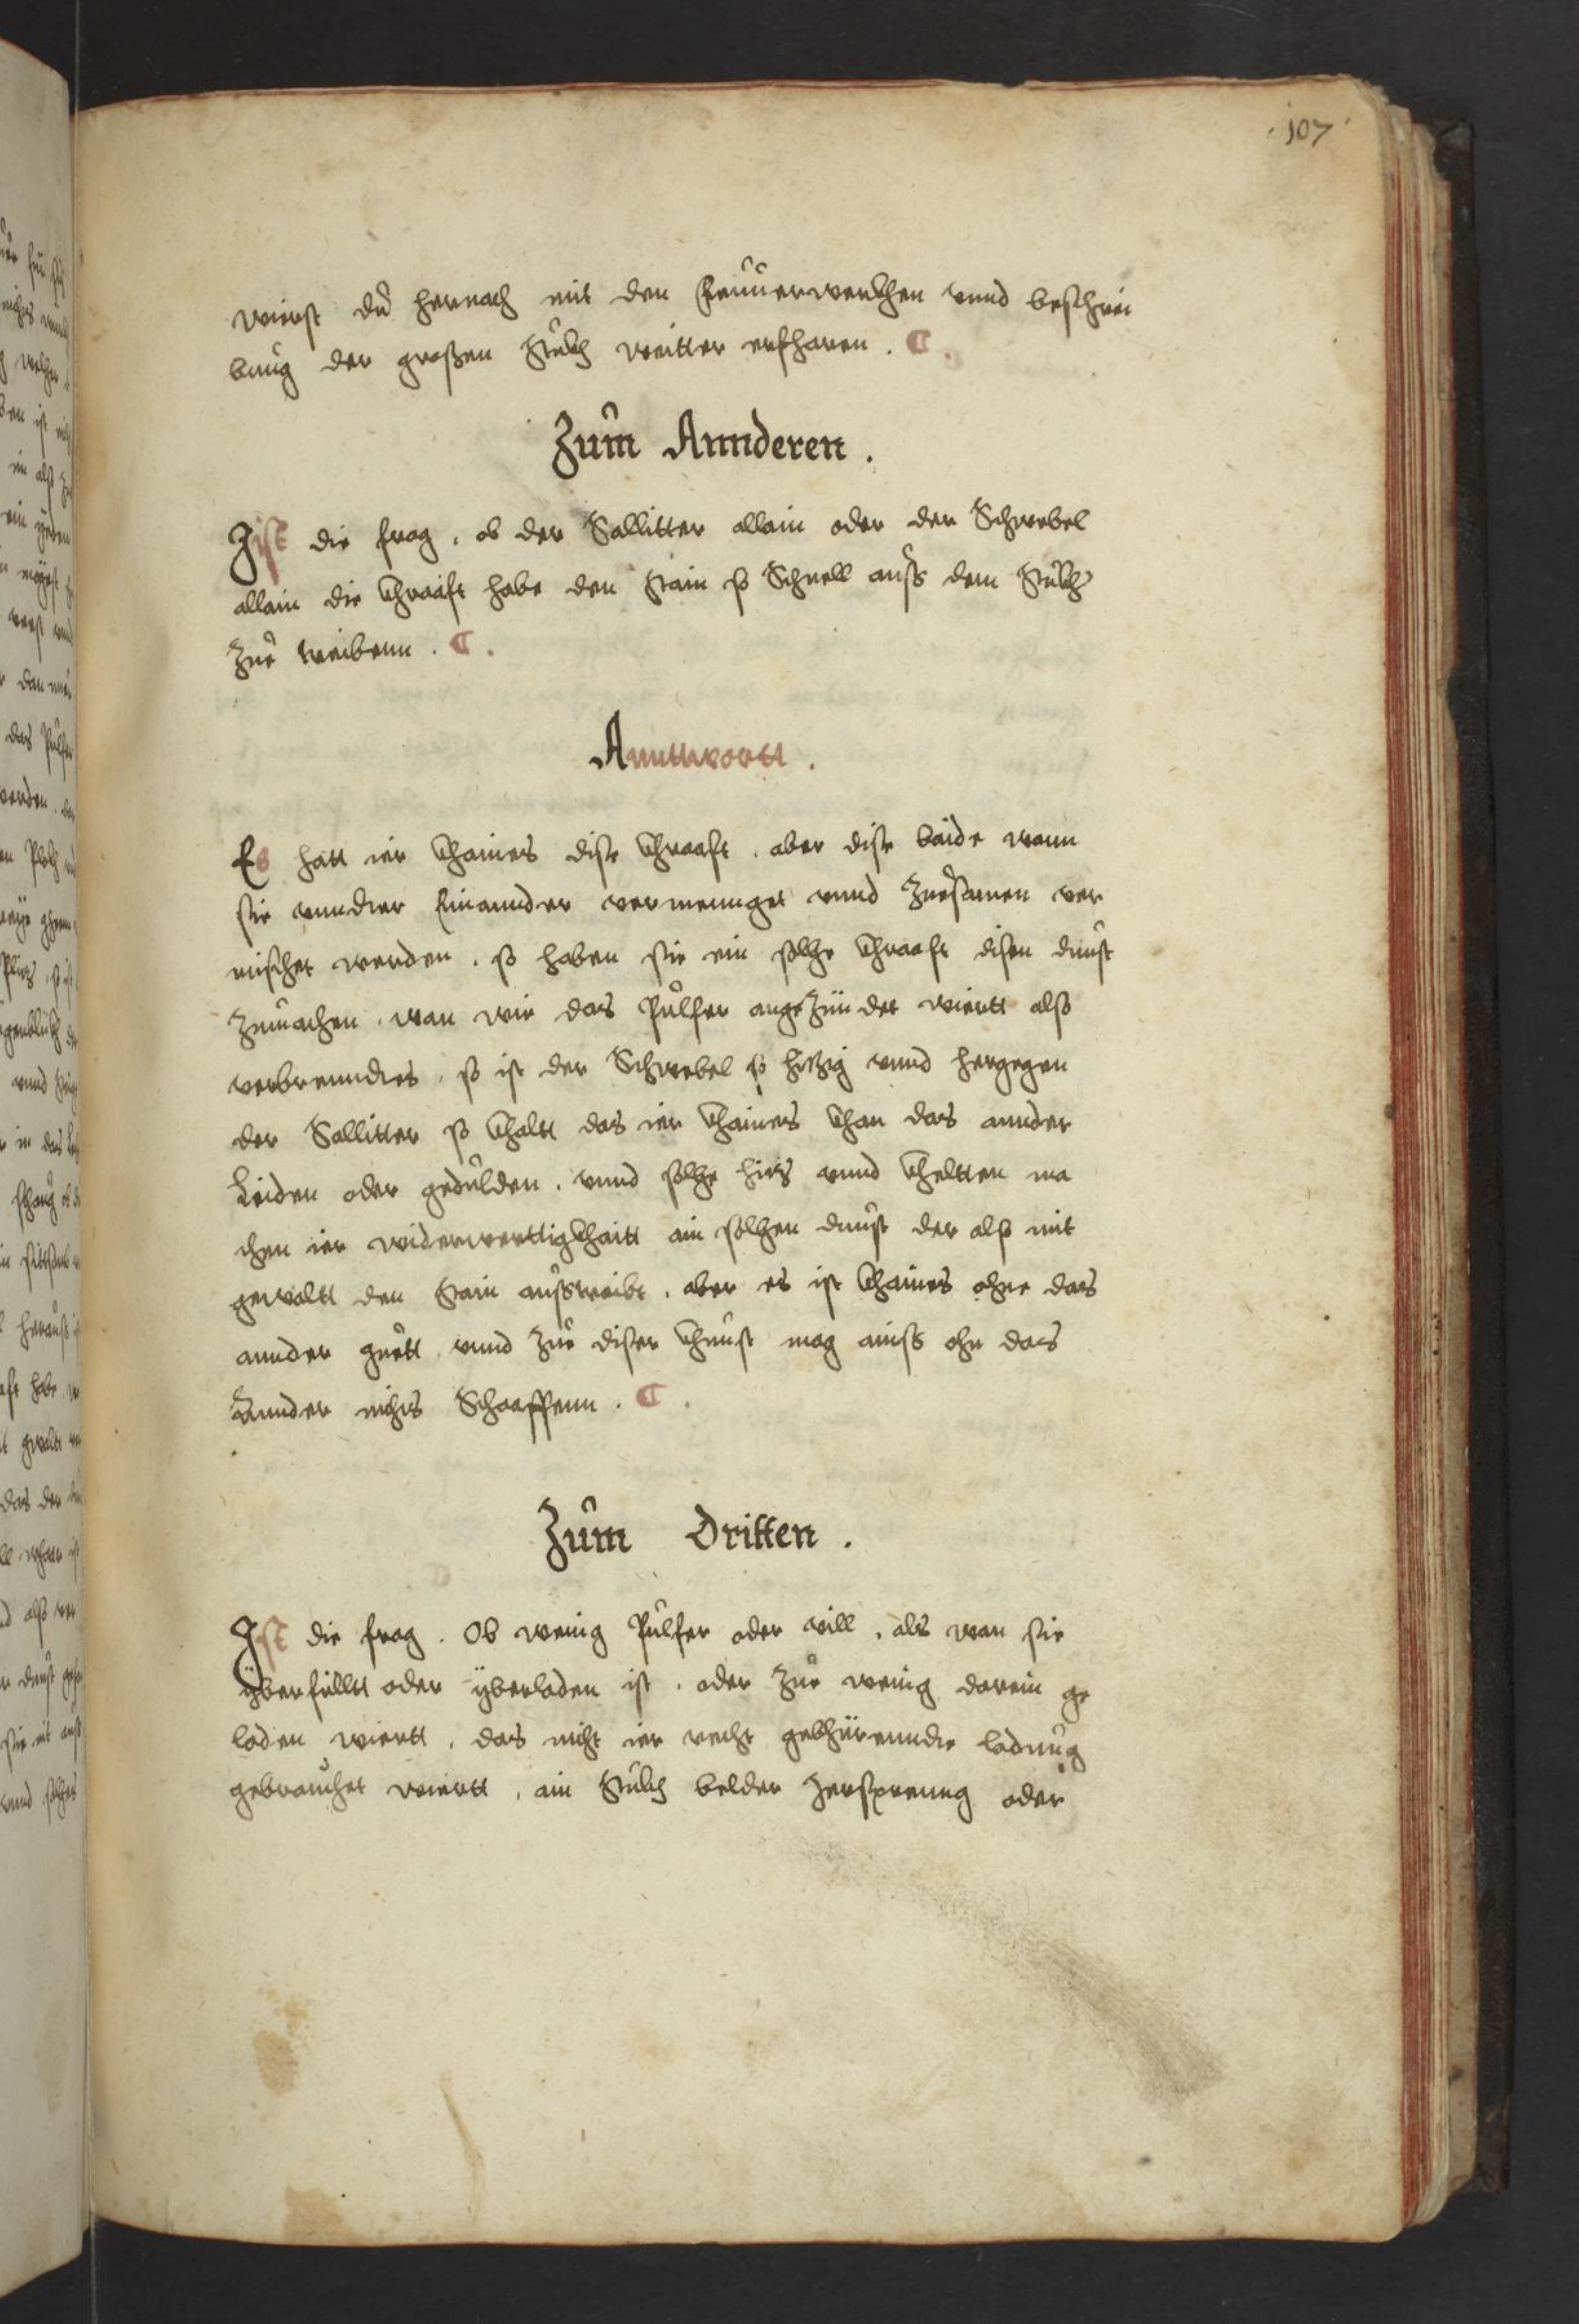 107
wierst du hernach mit den Feuuerwerckhen vnnd beschrei
bung der großen Stuckh weitter erfharen .
Zum Annderen .
Ist die frag , ob der Sallitter allain oder der Schwebel
allain die Chraafft habe den Stain so Schnell auss dem Stuckh
zue treibenn .
Anntwortt .
Es hatt ier Khaines dise Chraafft , aber dise baide wann
sie vnnder Einannder vermennget vnnd Zuesamen ver
mischet werden , so haben sie ein solche Chraafft disen dunst
zumachen , wan wie das Pulfer angezündet wiertt also
verbrenndes , so ist der Schwebel so hitzig vnnd hergegen
der Sallitter so Khaltt das ier Khaines Khan das annder
Leiden oder gedulden , vnnd solche hitz vnnd Kheltten ma
chen ier widerwerttigkhaitt ain solchen dunst der also mit
gewaltt den Stain ausstreibt , aber es ist Khaines ohne das
annder guett , vnnd zue diser Khunst mag ainss ohn das
Annder nichts Schaaffenn .
Zum Dritten .
Ist die frag . Ob wenig Pulfer oder vill , als wan sie
yberfülltt oder yberladen ist , oder zue wenig darein ge
laden wiertt , das nicht ier recht gebhürennde ladung
gebrauchet wiertt , ain Stuckh belder zersprenng oder